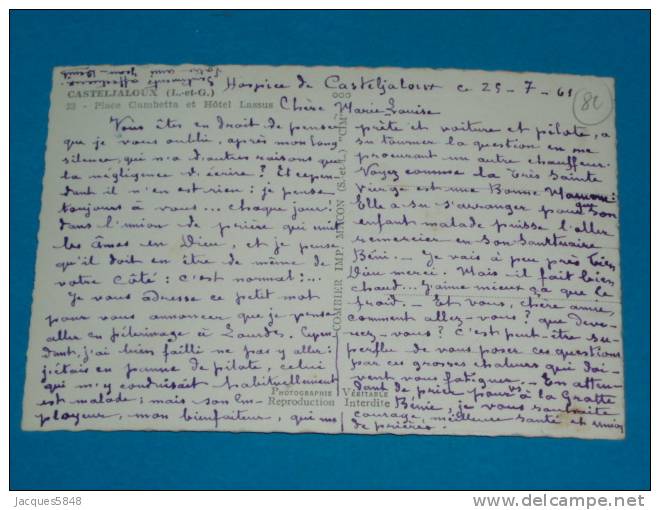 Hospice de Casteljaloux ce 25-7-61
82
CASTELJALOUX (L.-et-G.)
23 - Place Gambetta et Hôtel Lassus
Chère Marie-Louise
Vous êtes en droit de penser
que je vous oublie, après mon long
silence, qui n'a d'autres raisons que
la négligence d'écrire? Et cepen-
dant il n'en est rien: je pense
toujours à vous... chaque jour!
dans l'union de prière qui unit
les âmes en Dieu, et je pense
qu'il doit en être de même de
votre côté: c'est normal!...
Je vous adresse ce petit mot
pour vous annoncer que je pense
aller en pèlerinage à Lourdes. Cepen-
dant, j'ai bien failli ne pas y aller:
j'étais en panne de pilote, celui
qui m'y conduisait habituellement
est malade; mais son Em-
ployeur, mon bienfaiteur, qui me
prête et voiture et pilote, a
su tourner la question en me
procurant un autre chauffeur.
Voyez comme la Très Sainte
Vierge est une Bonne Maman:
Elle a su s'arranger pour que son
enfant malade puisse l'aller
remercier en son Sanctuaire
Béni. - Je vais à peu près bien
Dieu merci. Mais il fait bien
chaud... J'aime mieux ça que le
froid. - Et vous, chère amie,
comment allez-vous? que deve-
nez-vous? C'est peut-être su-
perflu de vous poser ces questions
par ces grosses chaleurs qui doi-
vent vous fatiguer. - En atten-
dant de prier pour vs. à la Grotte
Bénie, je vous souhaite
courage, meilleure santé et union
de prières.
Sentiments affectueux
COMBIER IMP. MACON (S.-et-L.) "CIM"
PHOTOGRAPHIE VÉRITABLE
Reproduction Interdite
Jacques5848
www.delcampe.net